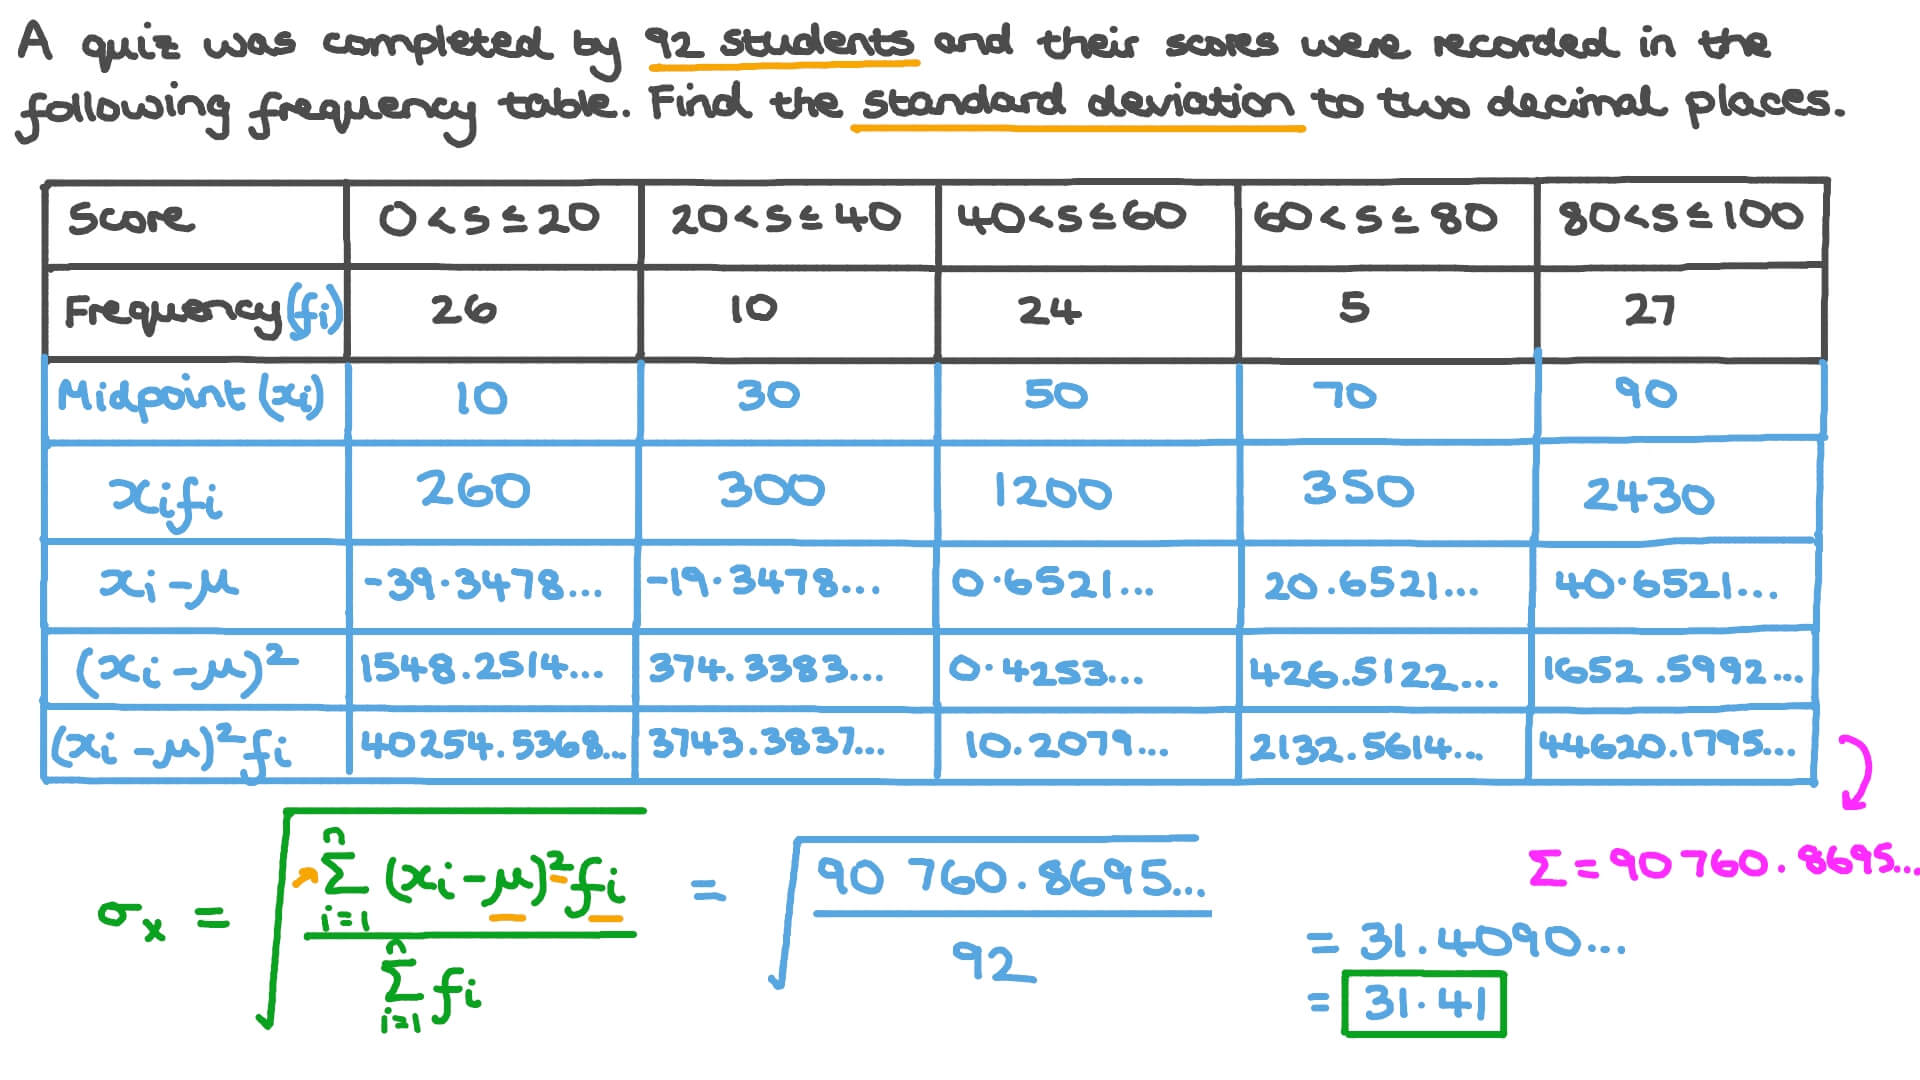 A quiz was completed by 92 students and their scores were recorded in the
following frequency table. Find the standard deviation to two decimal places.
Score 0<s≤20 20<s≤40 40<s≤60 60<s≤80 80<s≤100
Frequency(fi) 26 10 24 5 27
Midpoint (xi) 10 30 50 70 90
xifi 260 300 1200 350 2430
xi-μ -39.3478... -19.3478... 0.6521... 20.6521... 40.6521...
(xi-μ)² 1548.2514... 374.3383... 0.4253... 426.5122... 1652.5992...
(xi-μ)²fi 40254.5368... 3743.3837... 10.2079... 2132.5614... 44620.1795...
Σ=90760.8695...
σx = √ n Σ i=1 (xi-μ)²fi / n Σ i=1 fi = √ 90 760.8695... / 92
= 31.4090...
= 31.41